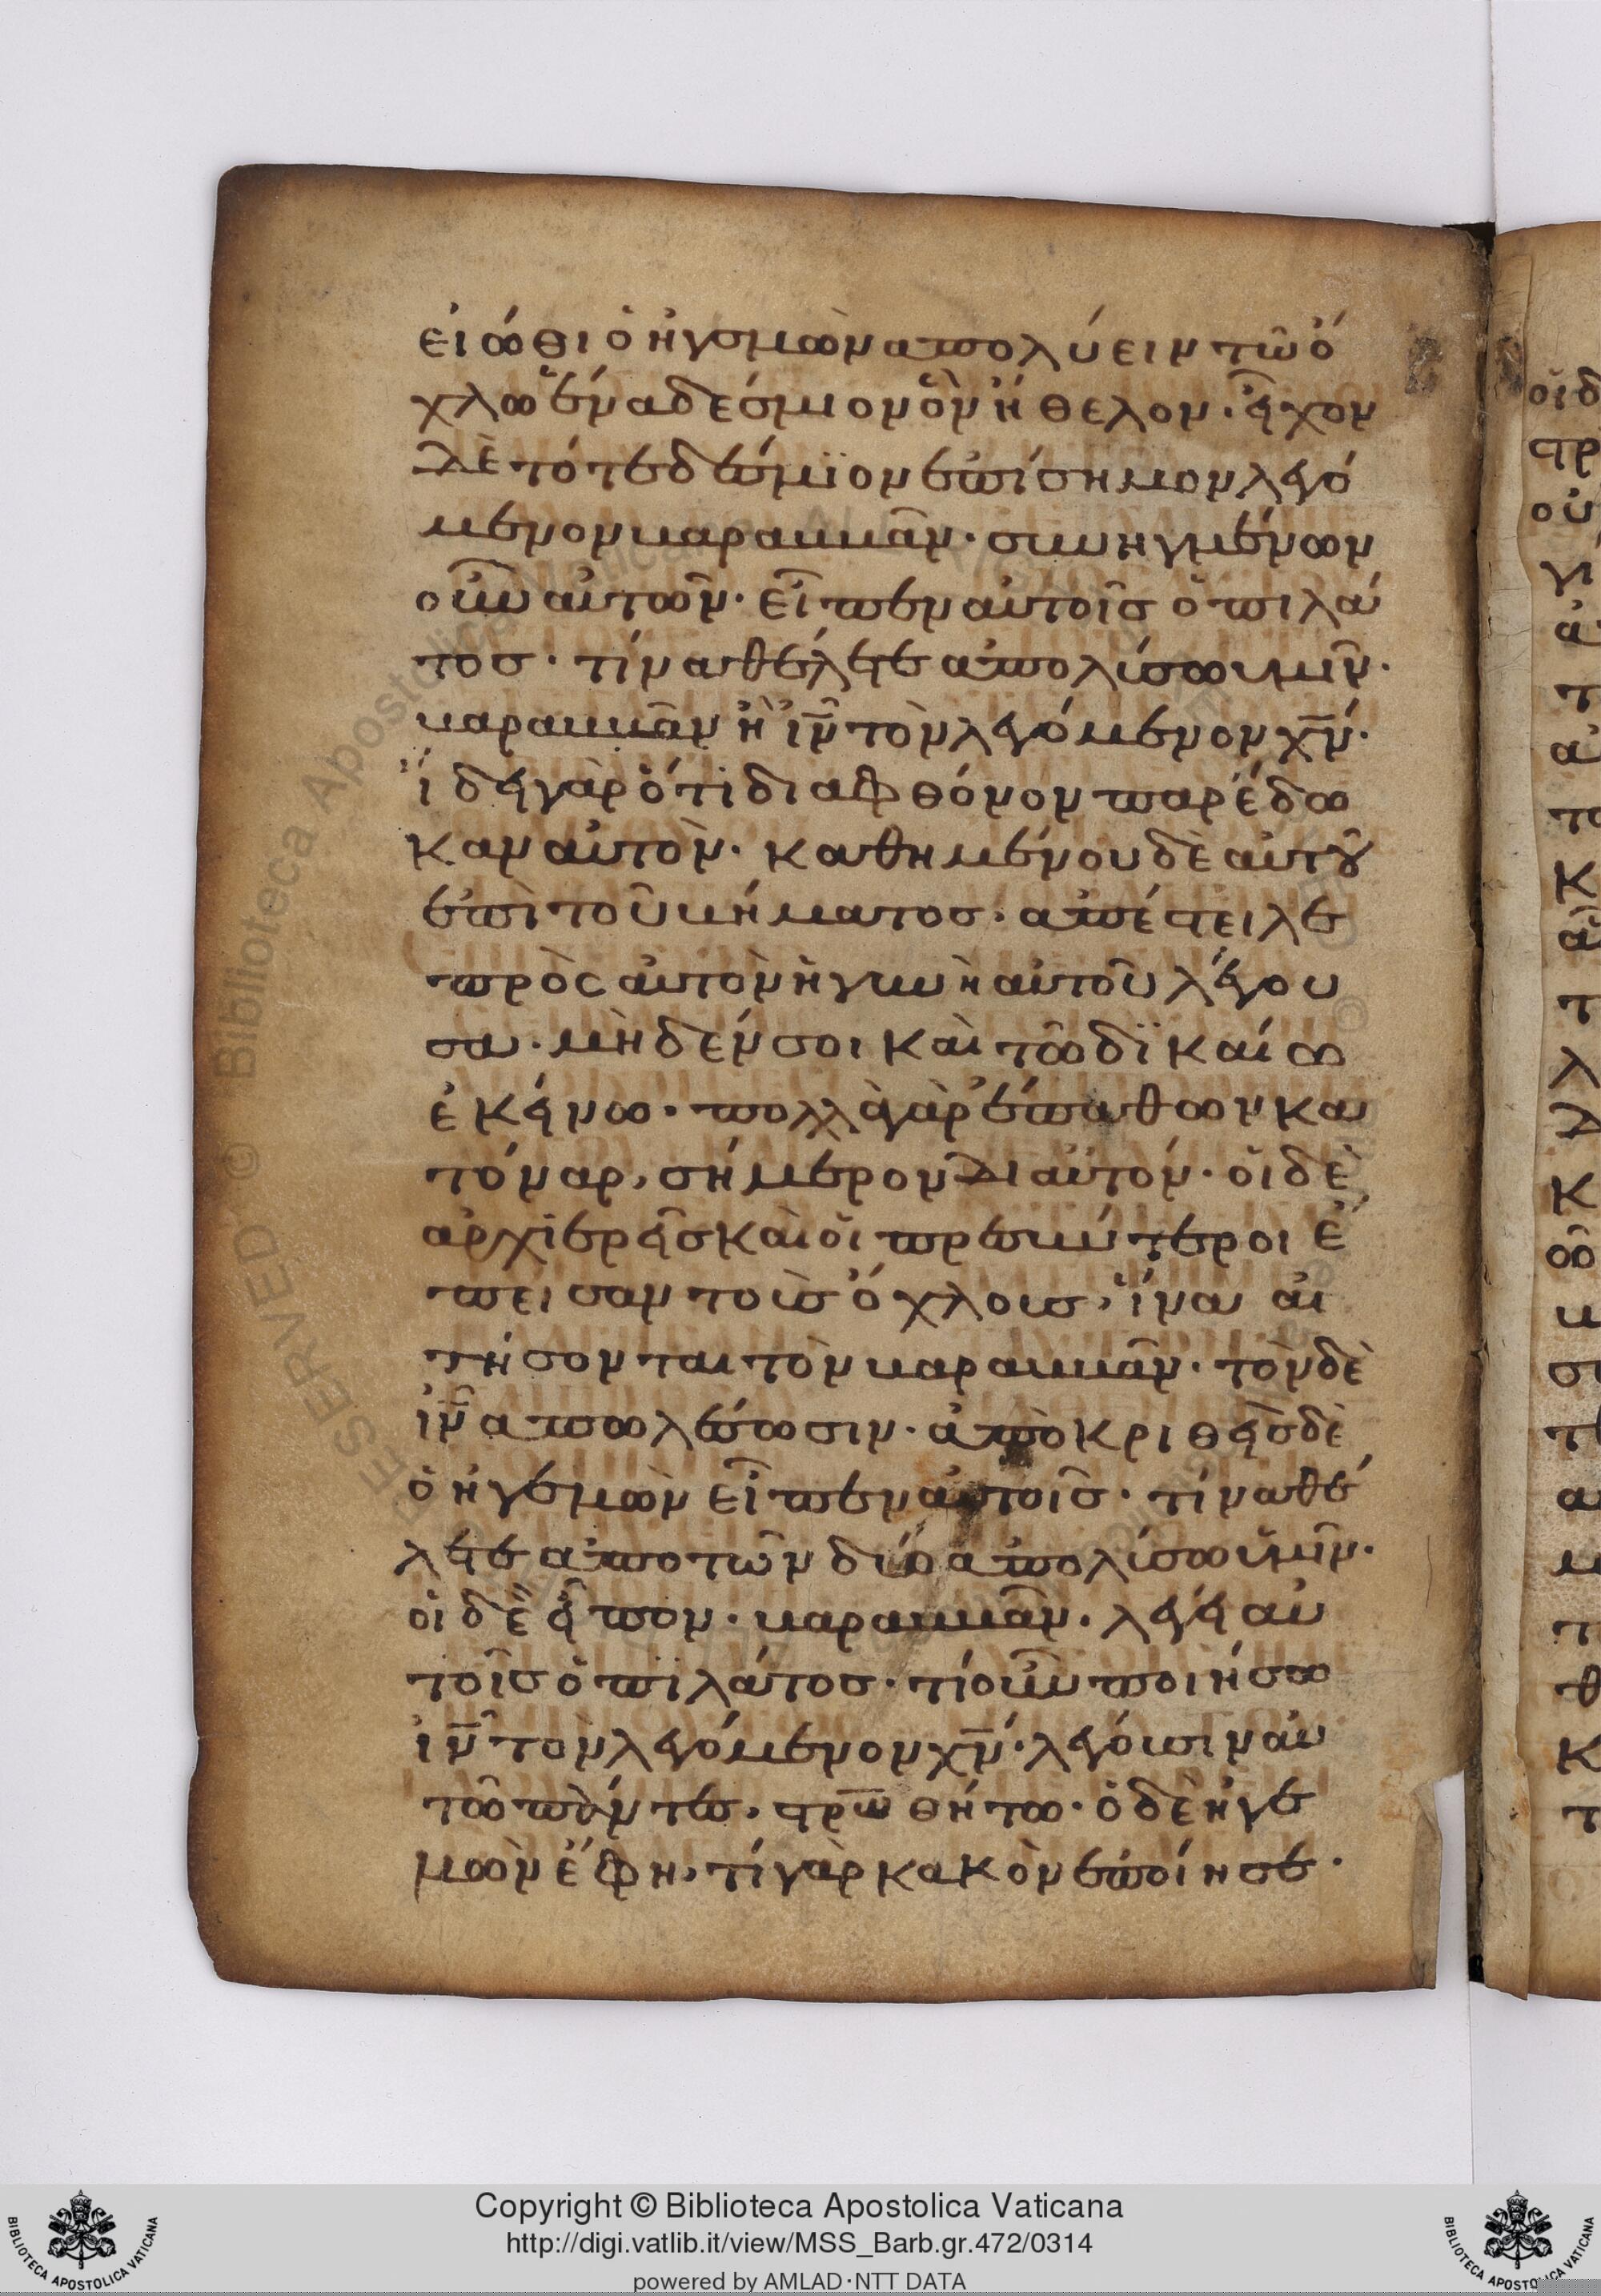 εἰώθι ὁ ἡγεμὼν ἀπολύειν τῶ ὄ
χλω ἕνα δέσμιον ὃν ἤθελον· εἶχον
δὲ τότε δέσμϊον ἐπίσημον λεγό
μενον βαραββᾶν· συνηγμένων
οὖν αὐτῶν· εἶπεν αὐτοῖς ὁ πιλά
τος· τίνα θέλετε ἀπολύσω υμῖν·
βαραββᾶν ἢ ιν̅ τὸν λεγόμενον χν̅·
ἤδει γὰρ ὅτι δια φθόνον παρέδω
καν αὐτὸν· καθημένου δὲ αὐτοῦ
ἐπὶ τοῦ βήματος· ἀπέστειλε
πρὸς αὐτὸν ἡ γυνὴ αὐτοῦ λέγου
σα· μὴδὲν σοι καὶ τῶ δϊκαίω
ἐκείνω· πολλὰ γὰρ ἔπαθον κα
τόναρ, σήμερον δι αὐτόν· οἱ δὲ
ἀρχϊερεῖς καὶ οἱ πρεσβύτεροι ἔ
πεισαν τοὺς ὄχλους, ἵνα αἰ
τήσονται τὸν βαραββᾶν· τὸν δὲ
ιν̅ ἀπωλέσωσιν· ἀπὸκριθεὶς δὲ
ὁ ἡγεμὼν εἶπεν αὐτοῖς· τίνα θέ
λετε ἀπο τῶν δύο ἀπολύσω ὑμῖν·
οἱ δὲ εἶπον· βαραββᾶν. λέγει αὐ
τοῖς ὁ πϊλάτος· τί οὖν ποιήσω
ιν̅ τὸν λεγόμενον χν̅· λέγουσιν αὐ
τῶ πάντες, στρ̅ω̅θήτω· ὁ δὲ ἡγε
μὼν ἔφη, τί γὰρ κακὸν ἐποίησε·
Copyright © Biblioteca Apostolica Vaticana
http://digi.vatlib.it/view/MSS_Barb.gr.472/0314
powered by AMLAD·NTT DATA
BIBLIOTECA APOSTOLICA VATICANA
BIBLIOTECA APOSTOLICA VATICANA